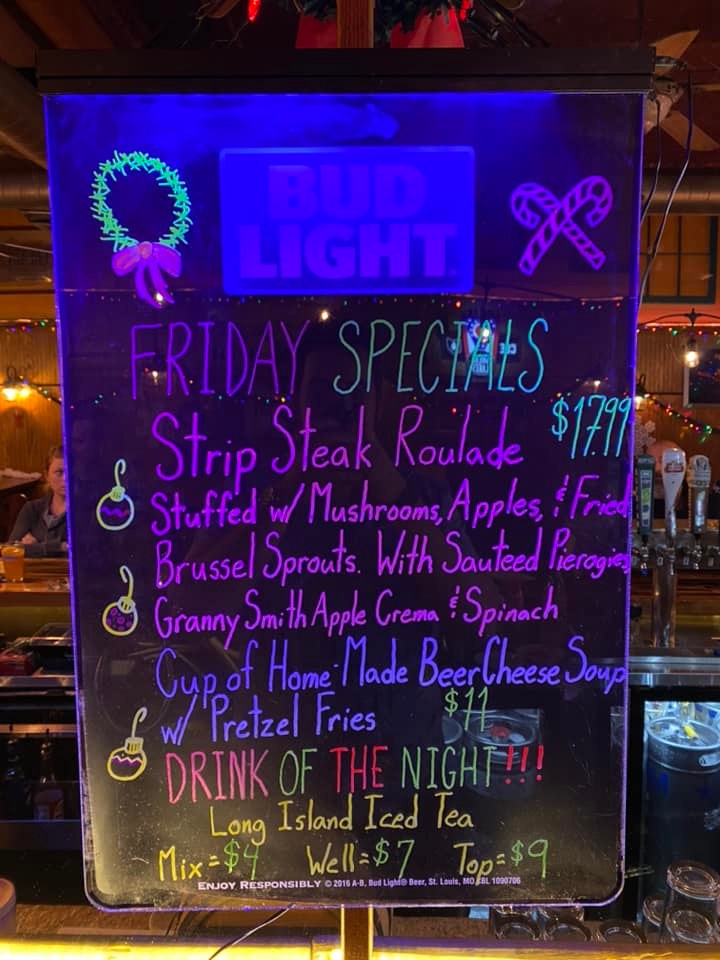 BUD
LIGHT
FRIDAY SPECIALS
Strip Steak Roulade $17.99
Stuffed w/ Mushrooms, Apples, & Fried
Brussel Sprouts. With Sauteed Pierogies
Granny Smith Apple Crema & Spinach
Cup of Home-Made Beer Cheese Soup
w/ Pretzel Fries $11
DRINK OF THE NIGHT!!!
Long Island Iced Tea
Mix=$4 Well=$7 Top=$9
ENJOY RESPONSIBLY © 2016 A-B, Bud Light® Beer, St. Louis, MO SBL 1090706